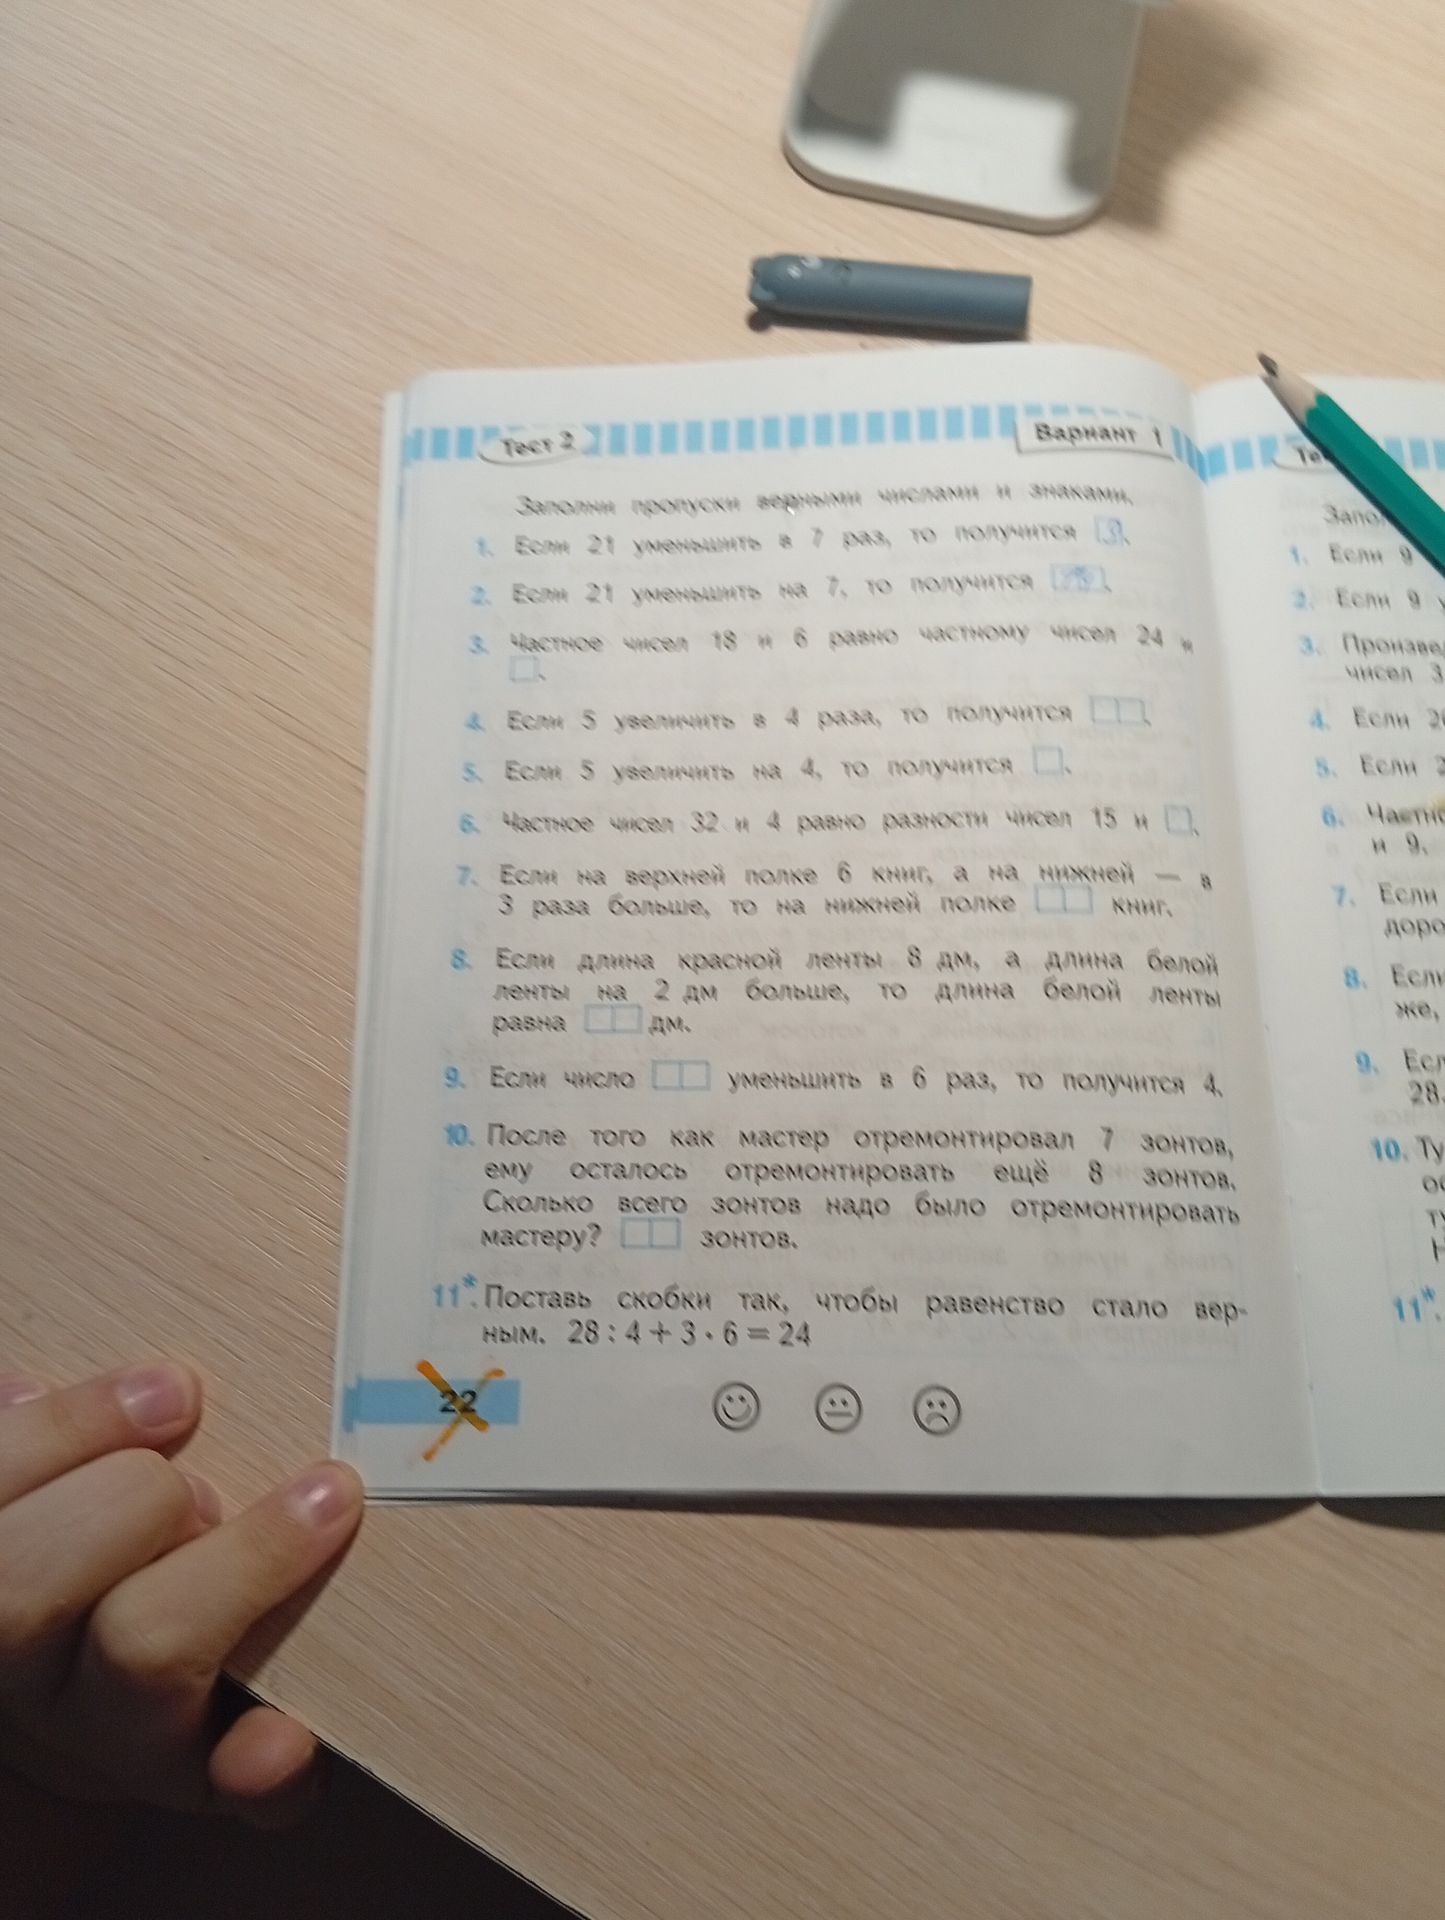 Тест 2
Вариант 1
Заполни пропуски верными числами и знаками.
1. Если 21 уменьшить в 7 раз, то получится 3.
2. Если 21 уменьшить на 7, то получится
3. Частное чисел 18 и 6 равно частному чисел 24 и
4. Если 5 увеличить в 4 раза, то получится
5. Если 5 увеличить на 4, то получится
6. Частное чисел 32 и 4 равно разности чисел 15 и
7. Если на верхней полке 6 книг, а на нижней — в
3 раза больше, то на нижней полке книг.
8. Если длина красной ленты 8 дм, а длина белой
ленты на 2 дм больше, то длина белой ленты
равна дм.
9. Если число уменьшить в 6 раз, то получится 4.
10. После того как мастер отремонтировал 7 зонтов,
ему осталось отремонтировать ещё 8 зонтов.
Сколько всего зонтов надо было отремонтировать
мастеру? зонтов.
11*. Поставь скобки так, чтобы равенство стало вер-
ным. 28 : 4 + 3 · 6 = 24
22
1. Если 9
2. Если 9
3.
чисел 3
4. Если
5. Если
6.
и 9.
7. Если
8.
же,
9.
28.
10.
11*.